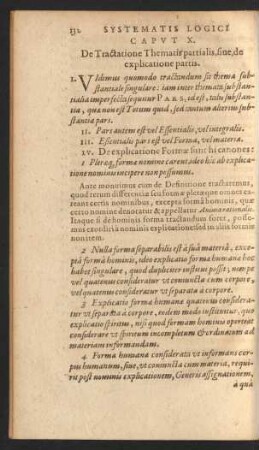 132 SYSTEMATIS LOGICI
CAPVT X.
De Tractatione Thematis partialis, siue, de
explicatione partis.
I. VIdimus quomodo tractandum sit thema sub-
stantiale singulare: iam inter themata substan-
tialia imperfecta sequitur PARS, id est, talis substan-
tia, quæ non est Totum quid, sed tantum alterius sub-
stantiæ pars.
II. Pars autem est vel Essentialis, vel integralis.
III. Essentialis pars est vel Forma, vel materia.
IV. De explicatione Formæ sunt hi canones:
1 Pleræq; formæ nomine carent, ideo hic ab explicatio-
ne nominis incipere non possumus.
Ante monuimus cum de Definitione tractaremus,
quod rerum differentiæ siue formæ pleræque omnes ca-
reant certis nominibus, exceptâ formâ hominis, quæ
certo nomine denotatur & appellatur Anima rationalis.
Itaque si de hominis forma tractandum foret, possu-
mus exordiri à nominis explicatione: sed in alijs formis
non item.
2 Nulla forma separabilis est à suâ materiâ, exce-
ptâ formâ hominis, ideo explicatio formæ humanæ hoc
habet singulare, quod dupliciter institui possit, nempe
vel quatenus consideratur vt coniuncta cum corpore,
vel quatenus consideratur vt separata à corpore.
3 Explicatio formæ humanæ quatenus considera-
tur vt separata à corpore, eodem modo instituitur, quo
explicatio spiritus, nisi quod formam hominis oporteat
considerare vt spiritum incompletum & ordinatum ad
materiam informandam.
4 Forma humana considerata vt informans cor-
pus humanum, siue, vt coniuncta cum materiâ, requi-
rit post nominis explicationem, Generis assignationem,
à quâ